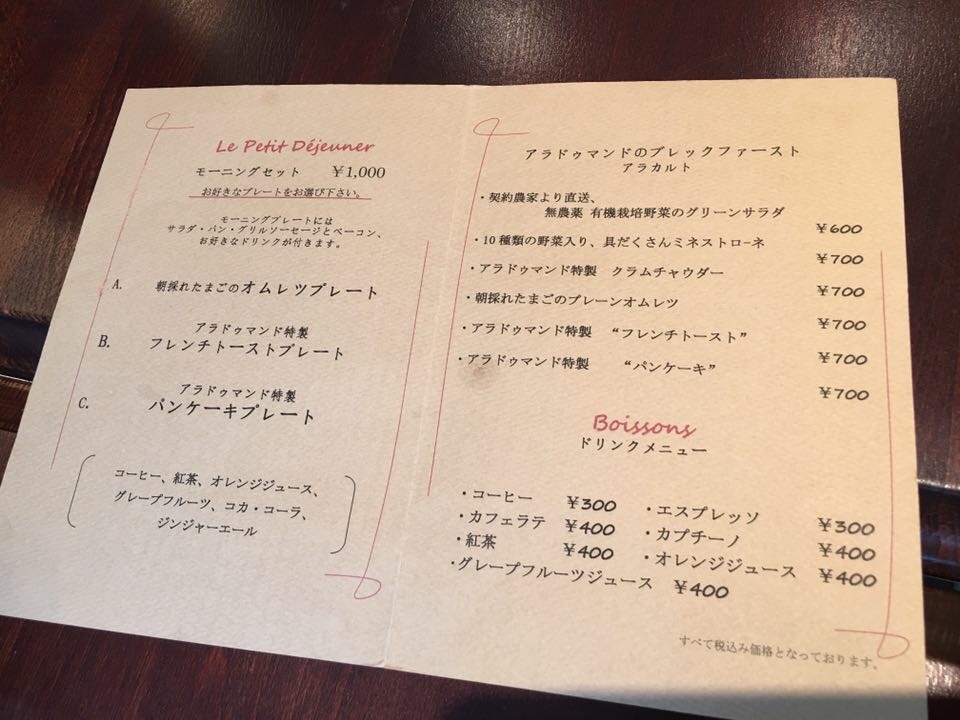 Le Petit Déjeuner
モーニングセット ￥1,000
お好きなプレートをお選び下さい。
モーニングプレートには
サラダ・パン・グリルソーセージとベーコン、
お好きなドリンクが付きます。
A. 朝採れたまごのオムレツプレート
アラドゥマンド特製
B. フレンチトーストプレート
アラドゥマンド特製
C. パンケーキプレート
コーヒー、紅茶、オレンジジュース、
グレープフルーツ、コカ・コーラ、
ジンジャーエール
アラドゥマンドのブレックファースト
アラカルト
・契約農家より直送、
無農薬 有機栽培野菜のグリーンサラダ
￥600
・10種類の野菜入り、具だくさんミネストローネ
￥700
・アラドゥマンド特製 クラムチャウダー
￥700
・朝採れたまごのプレーンオムレツ
￥700
・アラドゥマンド特製 “フレンチトースト”
￥700
・アラドゥマンド特製 “パンケーキ”
￥700
Boissons
ドリンクメニュー
・コーヒー ￥300 ・エスプレッソ ￥300
・カフェラテ ￥400 ・カプチーノ ￥400
・紅茶 ￥400 ・オレンジジュース ￥400
・グレープフルーツジュース ￥400
すべて税込み価格となっております。